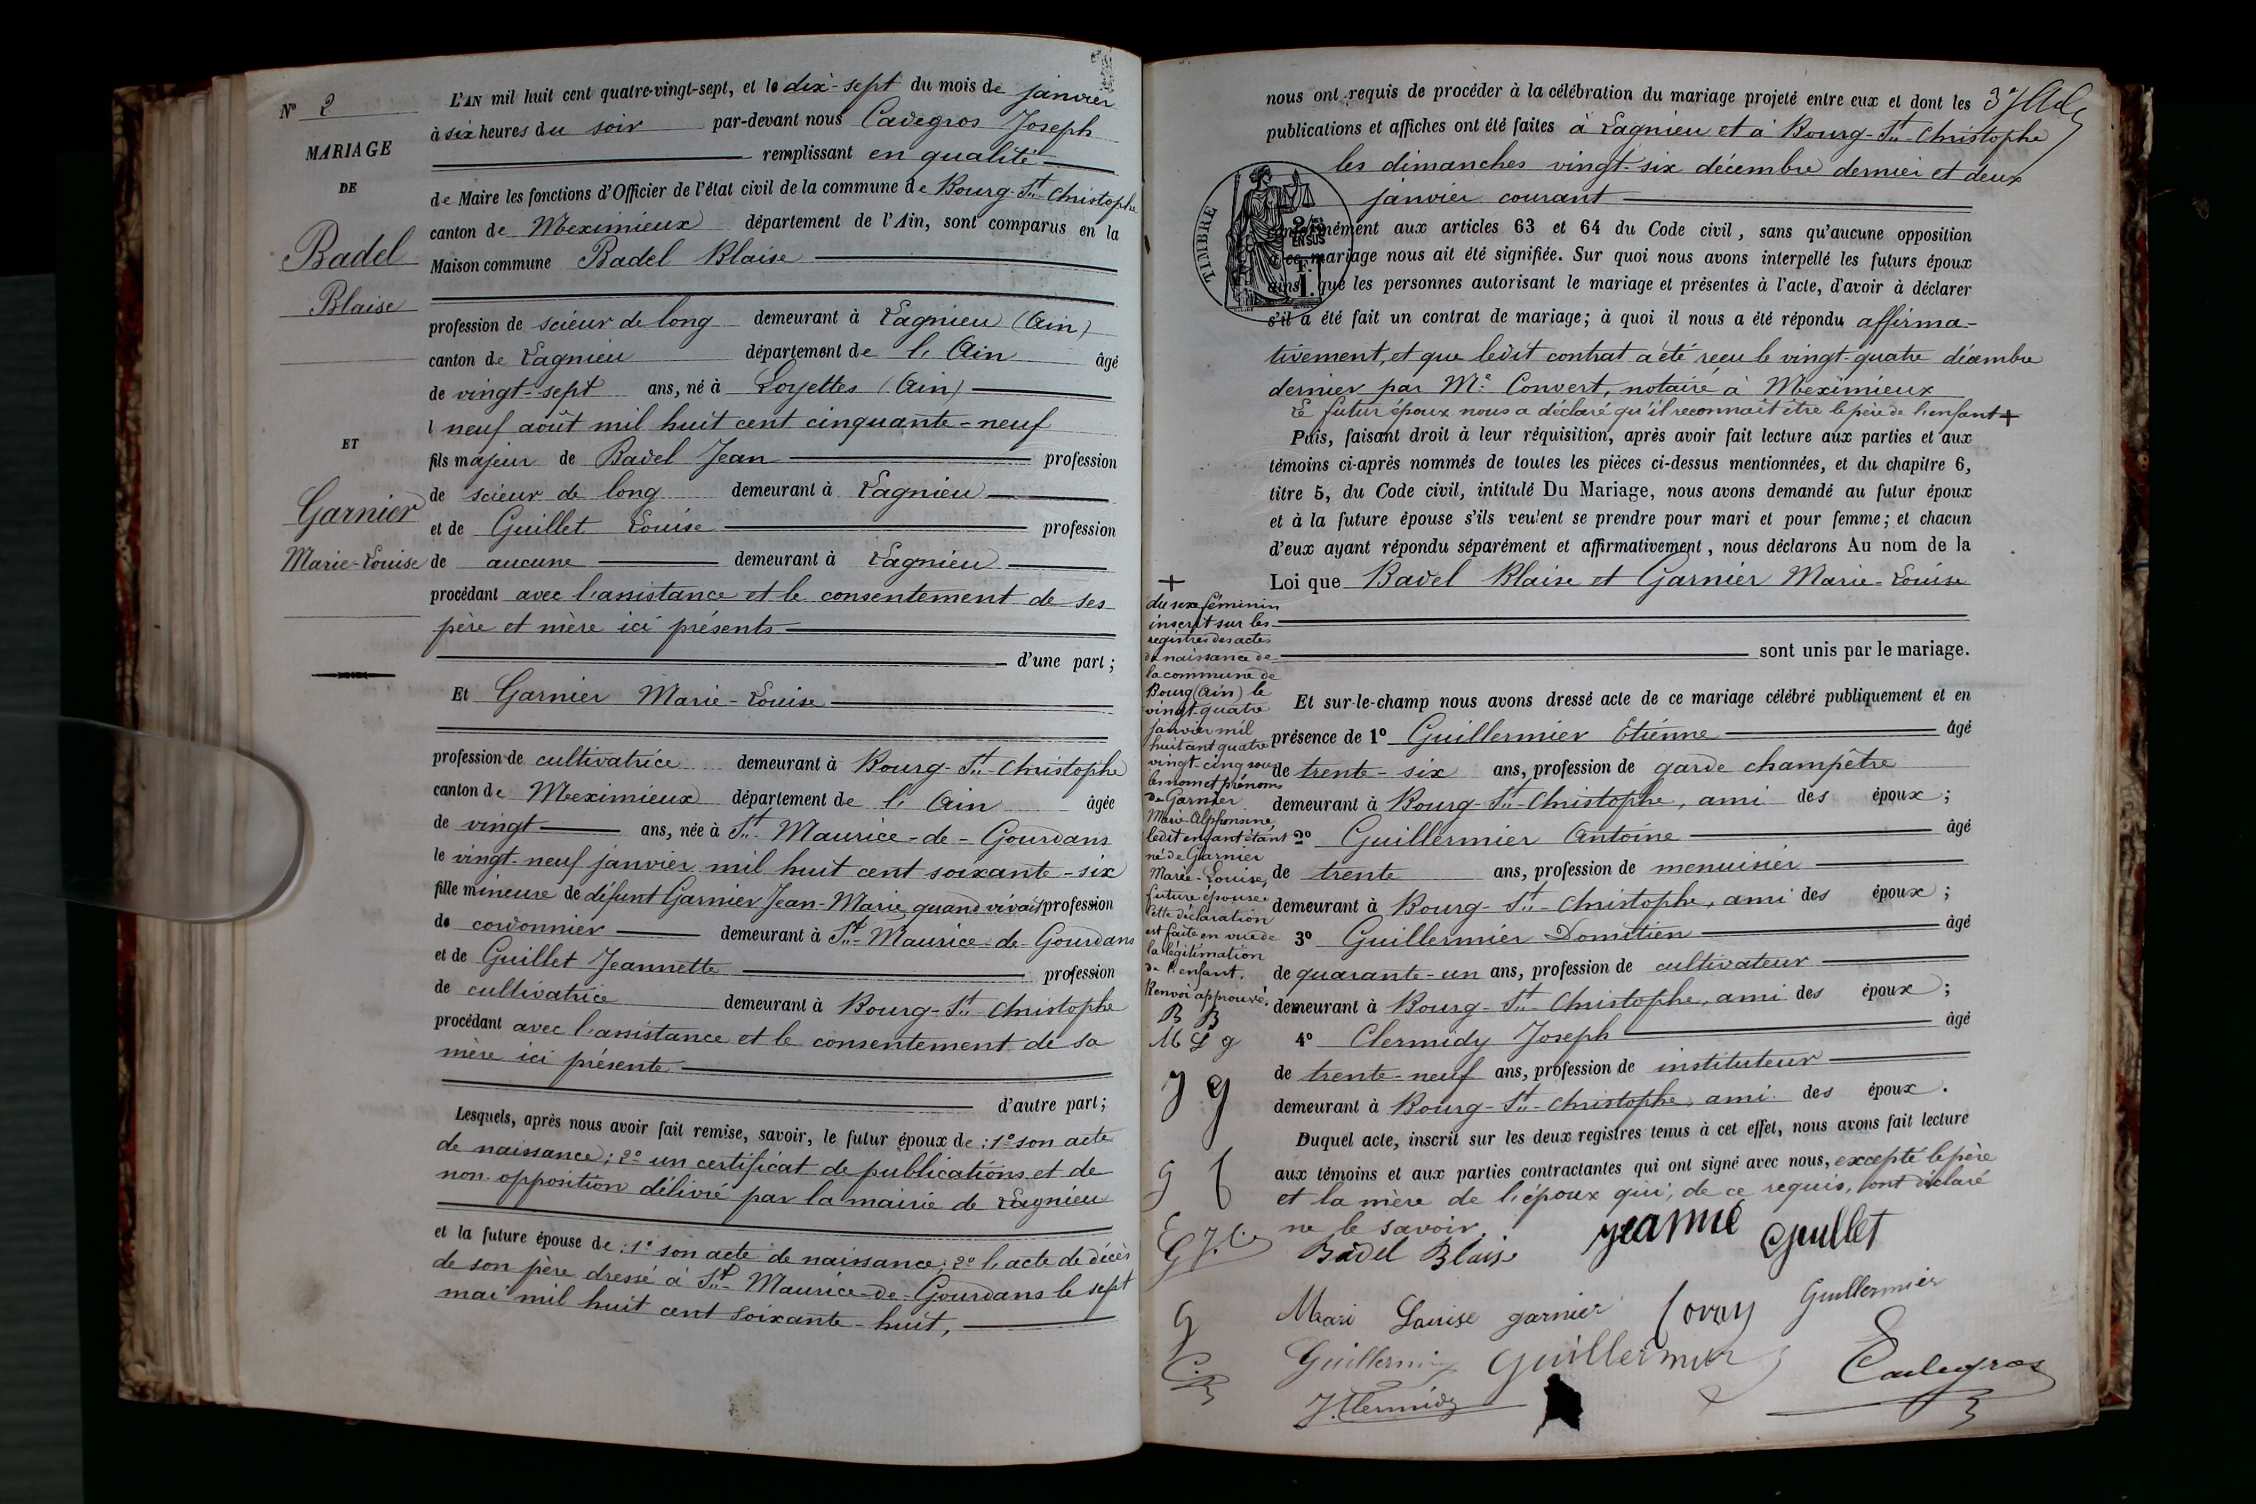 N° 2
MARIAGE
DE
Badel
Blaise
ET
Garnier
Marie-Louise
L'AN mil huit cent quatre-vingt-sept, et le dix-sept du mois de janvier
à six heures du soir par-devant nous Cadegros Joseph
remplissant en qualité
de Maire les fonctions d'Officier de l'état civil de la commune de Bourg-St-Christophe
canton de Meximieux département de l'Ain, sont comparus en la
Maison commune Badel Blaise
profession de scieur de long demeurant à Lagnieu (Ain)
canton de Lagnieu département de l'Ain âgé
de vingt-sept ans, né à Loyettes (Ain)
l neuf août mil huit cent cinquante-neuf
fils majeur de Badel Jean profession
de scieur de long demeurant à Lagnieu
et de Guillet Louise profession
de aucune demeurant à Lagnieu
procédant avec l'assistance et le consentement de ses
père et mère ici présents
d'une part;
Et Garnier Marie-Louise
profession de cultivatrice demeurant à Bourg-St-Christophe
canton de Meximieux département de l'Ain âgée
de vingt ans, née à St-Maurice-de-Gourdans
le vingt-neuf janvier mil huit cent soixante-six
fille mineure de défunt Garnier Jean-Marie, quand vivait profession
de cordonnier demeurant à St-Maurice-de-Gourdans
et de Guillet Jeannette profession
de cultivatrice demeurant à Bourg-St-Christophe
procédant avec l'assistance et le consentement de sa
mère ici présente
d'autre part;
Lesquels, après nous avoir fait remise, savoir, le futur époux de : 1° son acte
de naissance; 2° un certificat de publications et de
non opposition délivré par la mairie de Lagnieu
et la future épouse de : 1° son acte de naissance; 2° l'acte de décès
de son père dressé à St-Maurice-de-Gourdans le sept
mai mil huit cent soixante-huit,
nous ont requis de procéder à la célébration du mariage projeté entre eux et dont les
publications et affiches ont été faites à Lagnieu et à Bourg-St-Christophe
les dimanches vingt-six décembre dernier et deux
janvier courant
TIMBRE
2/10
EN SUS
conformément aux articles 63 et 64 du Code civil, sans qu'aucune opposition
à ce mariage nous ait été signifiée. Sur quoi nous avons interpellé les futurs époux
ainsi que les personnes autorisant le mariage et présentes à l'acte, d'avoir à déclarer
s'il a été fait un contrat de mariage; à quoi il nous a été répondu affirma-
tivement, et que ledit contrat a été reçu le vingt-quatre décembre
dernier par Me Convert, notaire à Meximieux
Le futur époux nous a déclaré qu'il reconnait être le père de l'enfant +
Puis, faisant droit à leur réquisition, après avoir fait lecture aux parties et aux
témoins ci-après nommés de toutes les pièces ci-dessus mentionnées, et du chapitre 6,
titre 5, du Code civil, intitulé Du Mariage, nous avons demandé au futur époux
et à la future épouse s'ils veulent se prendre pour mari et pour femme; et chacun
d'eux ayant répondu séparément et affirmativement, nous déclarons Au nom de la
Loi que Badel Blaise et Garnier Marie-Louise
sont unis par le mariage.
Et sur-le-champ nous avons dressé acte de ce mariage célébré publiquement et en
présence de 1° Guillermier Etienne âgé
de trente-six ans, profession de garde champêtre
demeurant à Bourg-St-Christophe, ami des époux;
2° Guillermier Antoine âgé
de trente ans, profession de menuisier
demeurant à Bourg-St-Christophe, ami des époux;
3° Guillermier Domitien âgé
de quarante-un ans, profession de cultivateur
demeurant à Bourg-St-Christophe, ami des époux;
4° Clermidy Joseph âgé
de trente-neuf ans, profession de instituteur
demeurant à Bourg-St-Christophe, ami des époux.
Duquel acte, inscrit sur les deux registres tenus à cet effet, nous avons fait lecture
aux témoins et aux parties contractantes qui ont signé avec nous, excepté le père
et la mère de l'époux qui, de ce requis, ont déclaré
ne le savoir.
+
du sexe féminin
inscrit sur les
registres des actes
de naissance de
la commune de
Bourg (Ain) le
vingt-quatre
janvier mil
huit cent quatre
vingt-cinq sous
les nom et prénoms
de Garnier
Marie-Alphonsine
ledit enfant étant
né de Garnier
Marie-Louise,
future épouse.
Cette déclaration
est faite en vue de
la légitimation
de l'enfant.
Renvoi approuvé.
B B
M L g
J g
Badel Blaise
jeanne guillet
Mari Louise garnier
Guillermier
Guillermier
J. Clermidy
Cadegros